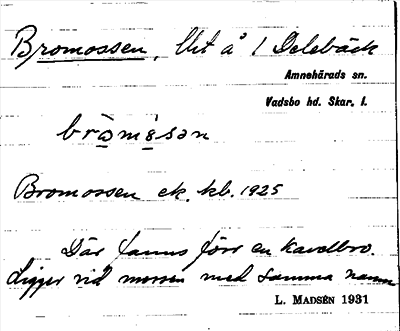 Bromossen, Ut å 1 Delebäck
Amnehärads sn.
Vadsbo hd. Skar. l.
bròmòsən
Bromossen ek. kb. 1925
Där fanns förr en kavelbro.
Ligger vid mossen med samma namn
L. MADSÉN 1931